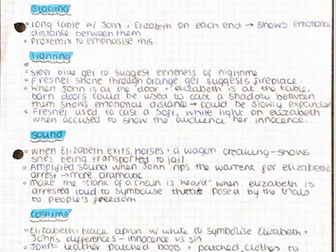 Staging
• long table w/ John + Elizabeth on each end → shows emotional
distance between them
• Proxemix to emphasise this.
Lighting
• Steel blue gel to suggest eereness of nightime
• Fresnel shone through orange gel suggests fireplace.
• when John is at the door + elizabeth is at the table,
barn doors could be used to cast a shadow between
them shows emotional distance → could be slowly expanded
• Fresnel used to cast a soft, white light on elizabeth
when accused to show the audience her innocence.
Sound
• when Elizabeth exits, horses + a wagon creaking - shows
shes being transported to jail
• Amplified sound when John rips the warrent for elizabeths
arrest → more dramatic
• make the "clank of a chain is heard" when elizabeth is
arrested loud to symbolise threats posed by the trials
to people's freedom
Costume
• Elizabeth black apron w/ white to symbolise Elizabeth +
Johns differences - innocence vs sin
• Johns leather patched boots + patched clothes to